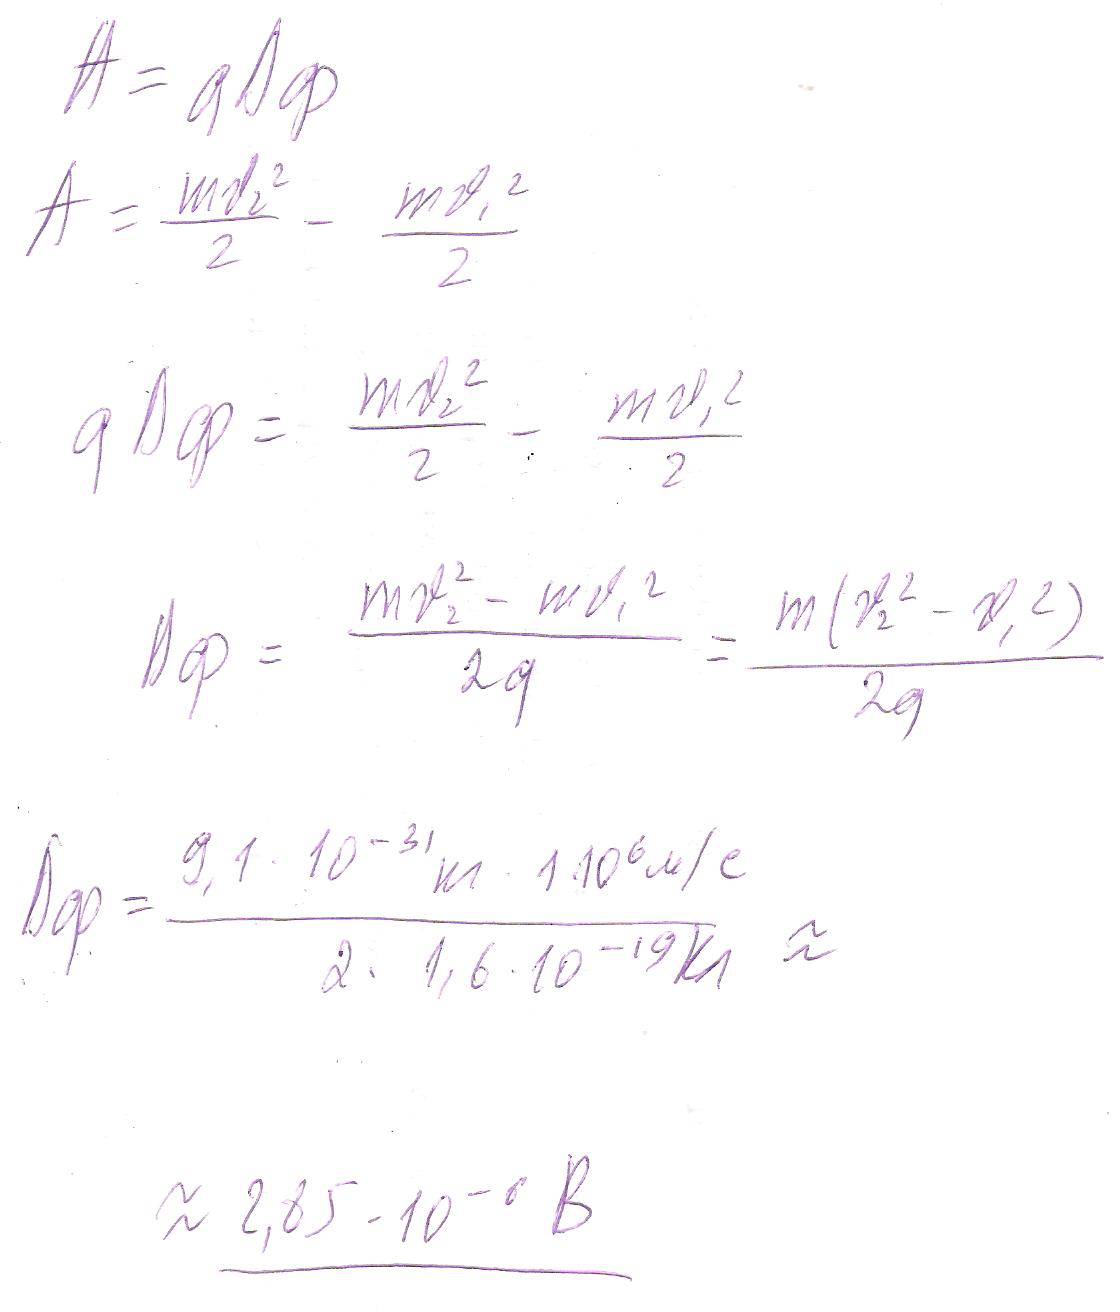 A = qΔφ
A = mv₂²/2 - mv₁²/2
qΔφ = mv₂²/2 - mv₁²/2
Δφ = (mv₂² - mv₁²)/2q = m(v₂² - v₁²)/2q
Δφ = (9,1 · 10⁻³¹ кг · 1 10⁶ м/с)/(2 · 1,6 · 10⁻¹⁹ Кл) ≈
≈ 2,85 · 10⁻⁶ В